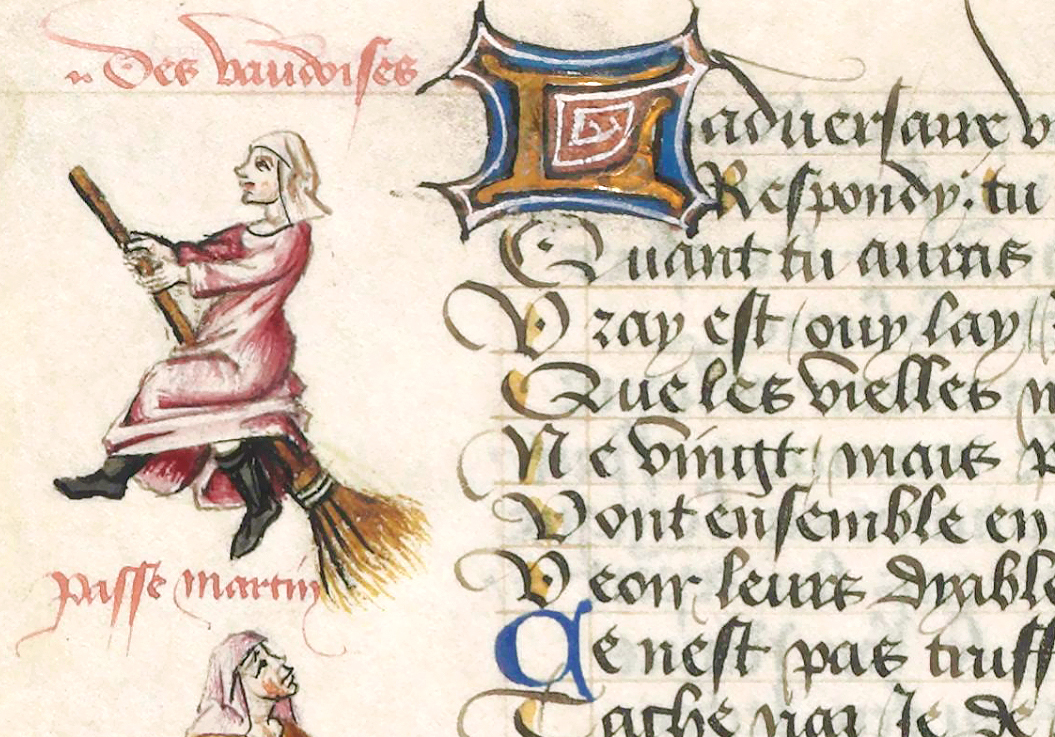 Des vaudoises
L adversaire v
Respondy: tu
Quant tu auras
Vray est ouy lay
Que les vielles n
Ne vingt mais p
Vont ensemble en
Veoir leurs dyable
passe martin
Ce nest pas truff
Tache par Je de